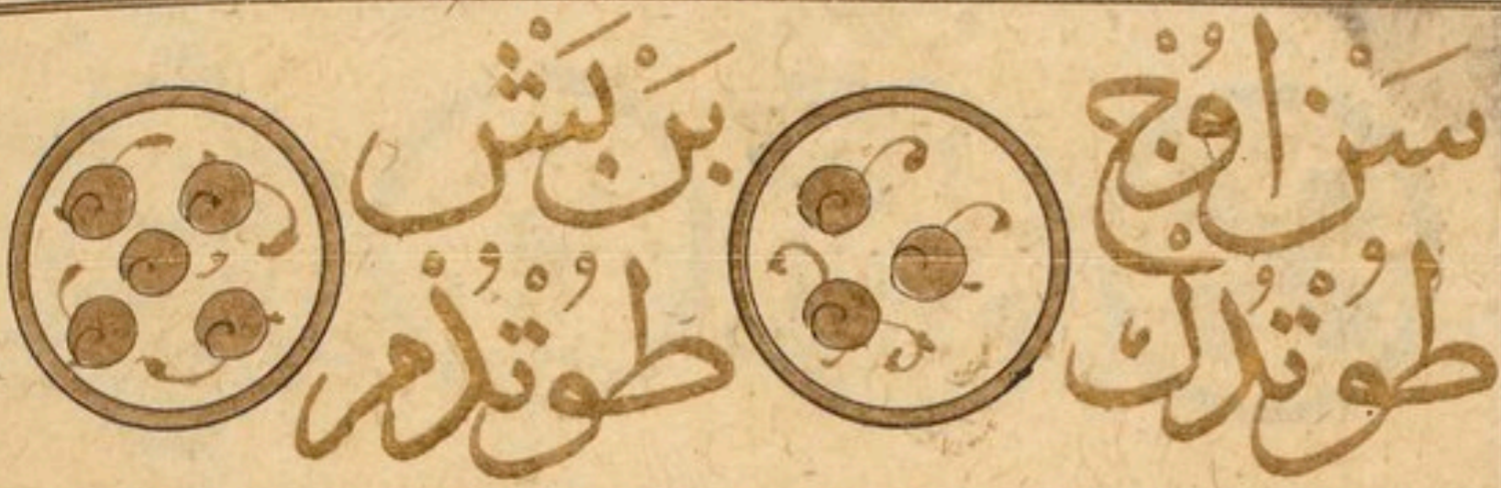 سَنْ اوُجْ
طُوتْدُكْ
بَنْ بَشْ
طُوتْدُمْ